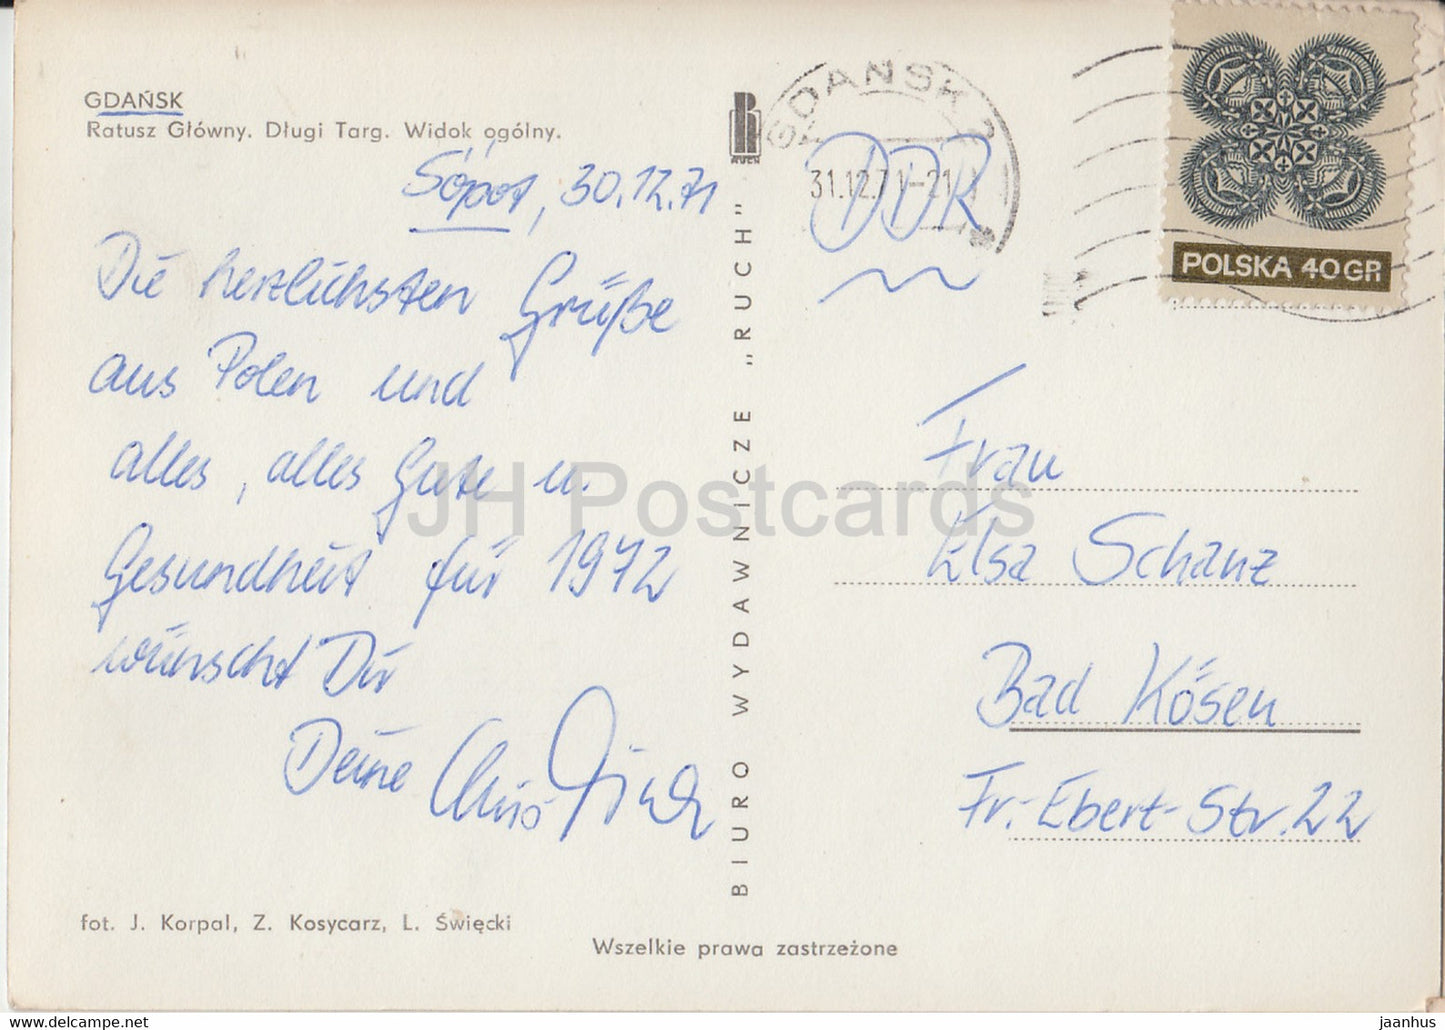 GDAŃSK
Ratusz Główny. Długi Targ. Widok ogólny.
Sópot, 30.12.71
Die herzlichsten Grüße
aus Polen und
alles, alles Gute u.
Gesundheit für 1972
wünscht Dir
Deine
fot. J. Korpal, Z. Kosycarz, L. Święcki
Wszelkie prawa zastrzeżone
BIURO WYDAWNICZE „RUCH"
RUCH
GDAŃSK 2
31.12.71-21
DDR
POLSKA 40GR
Frau
Elsa Schanz
Bad Kösen
Fr.-Ebert-Str. 22
JH Postcards
https://www.delcampe.net
jaanhus